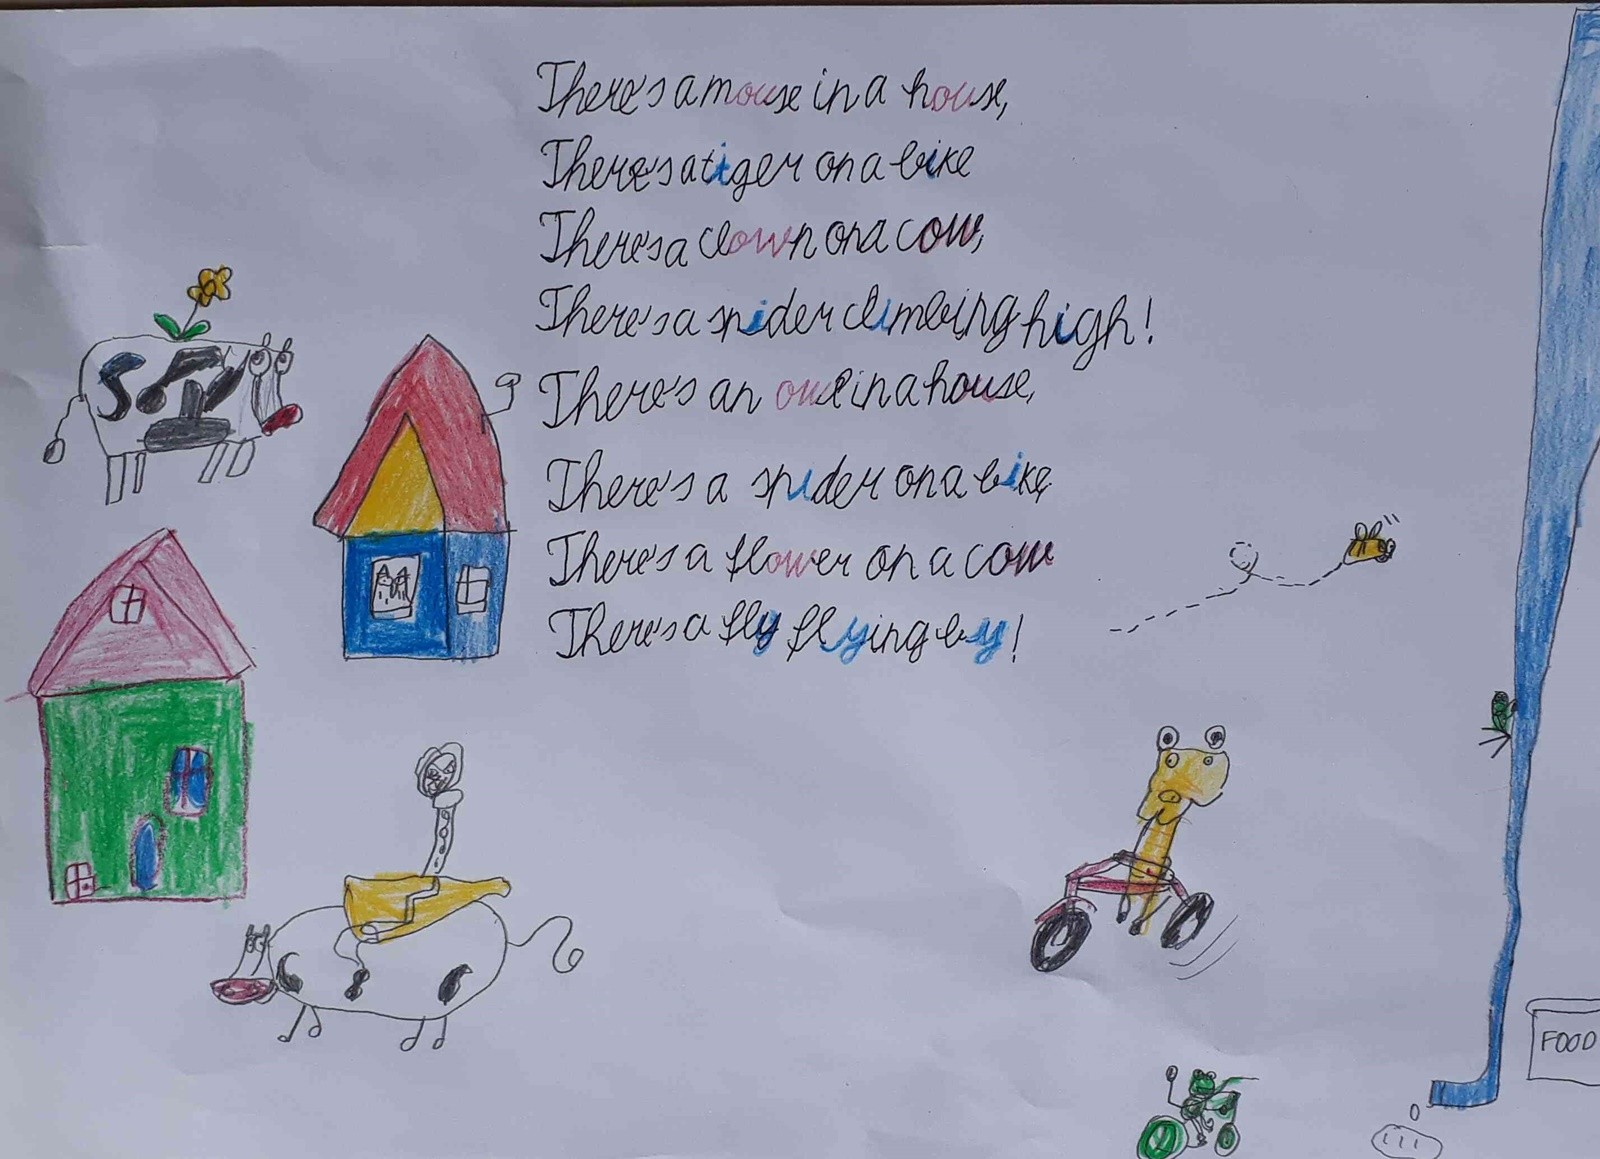 There's a mouse in a house,
There's a tiger on a bike
There's a clown on a cow,
There's a spider climbing high!
There's an owl in a house,
There's a spider on a bike
There's a flower on a cow
There's a fly flying by!
FOOD